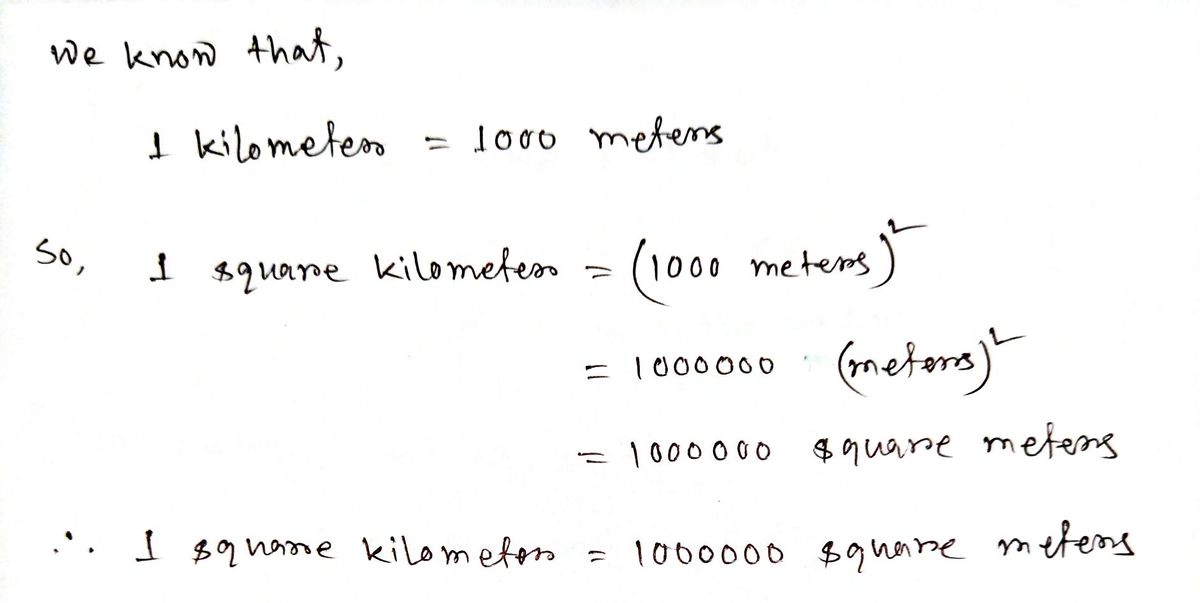 We know that,
1 kilometer = 1000 meters
So, 1 square kilometer = (1000 meters)²
= 1000000 (meters)²
= 1000000 square meters
∴ 1 square kilometer = 1000000 square meters